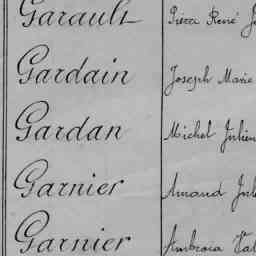 Garault Pierre René
Gardain Joseph Marie
Gardan Michel Julien
Garnier Amand
Garnier Ambroise